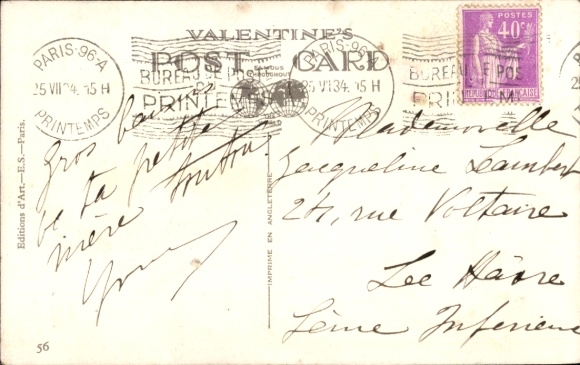 VALENTINE'S
POST CARD
FAMOUS THROUGHOUT THE WORLD
PARIS-96-A
25 VII 34 15 H
PRINTEMPS
BUREAU DE POS
PRINTEM
PARIS-96
VII 34 15 H
PRINTEMPS
BUREAU DE POS
PRIN EM
POSTES
40c
REPUBLIQUE FRANÇAISE
Gros bai
de ta petite
Yvonne
Mademoiselle
Jacqueline Lambert
24, rue Voltaire
Le Havre
Seine Inférieure
Editions d'Art.—E.S.—Paris.
IMPRIMÉ EN ANGLETERRE
56